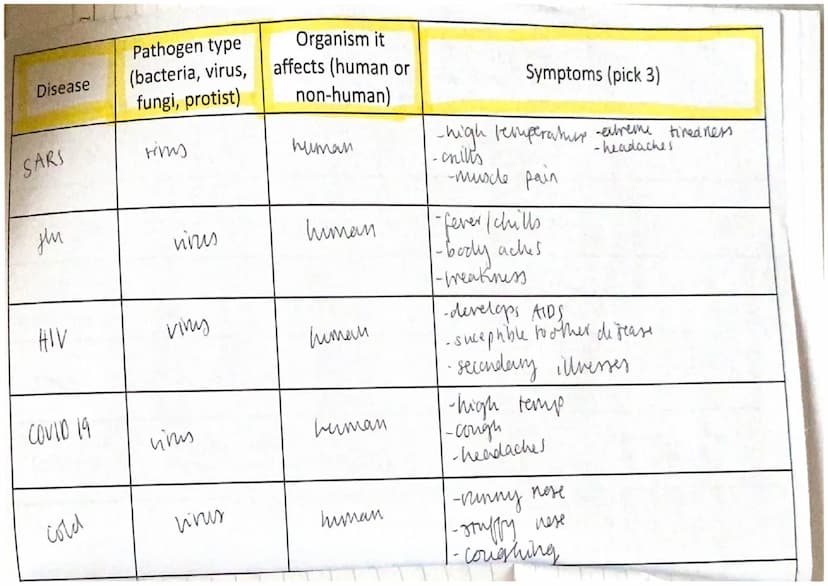 Disease
Pathogen type
(bacteria, virus,
fungi, protist)
Organism it
affects (human or
non-human)
Symptoms (pick 3)
SARS
virus
human
-high temperature -extreme tiredness
-chills -headaches
-muscle pain
flu
virus
human
-fever/chills
-body aches
-weakness
HIV
virus
human
-develops AIDS
-suceptible to other disease
-secondary illnesses
COVID 19
virus
human
-high temp
-cough
-headaches
cold
virus
human
-runny nose
-stuffy nose
-coughing